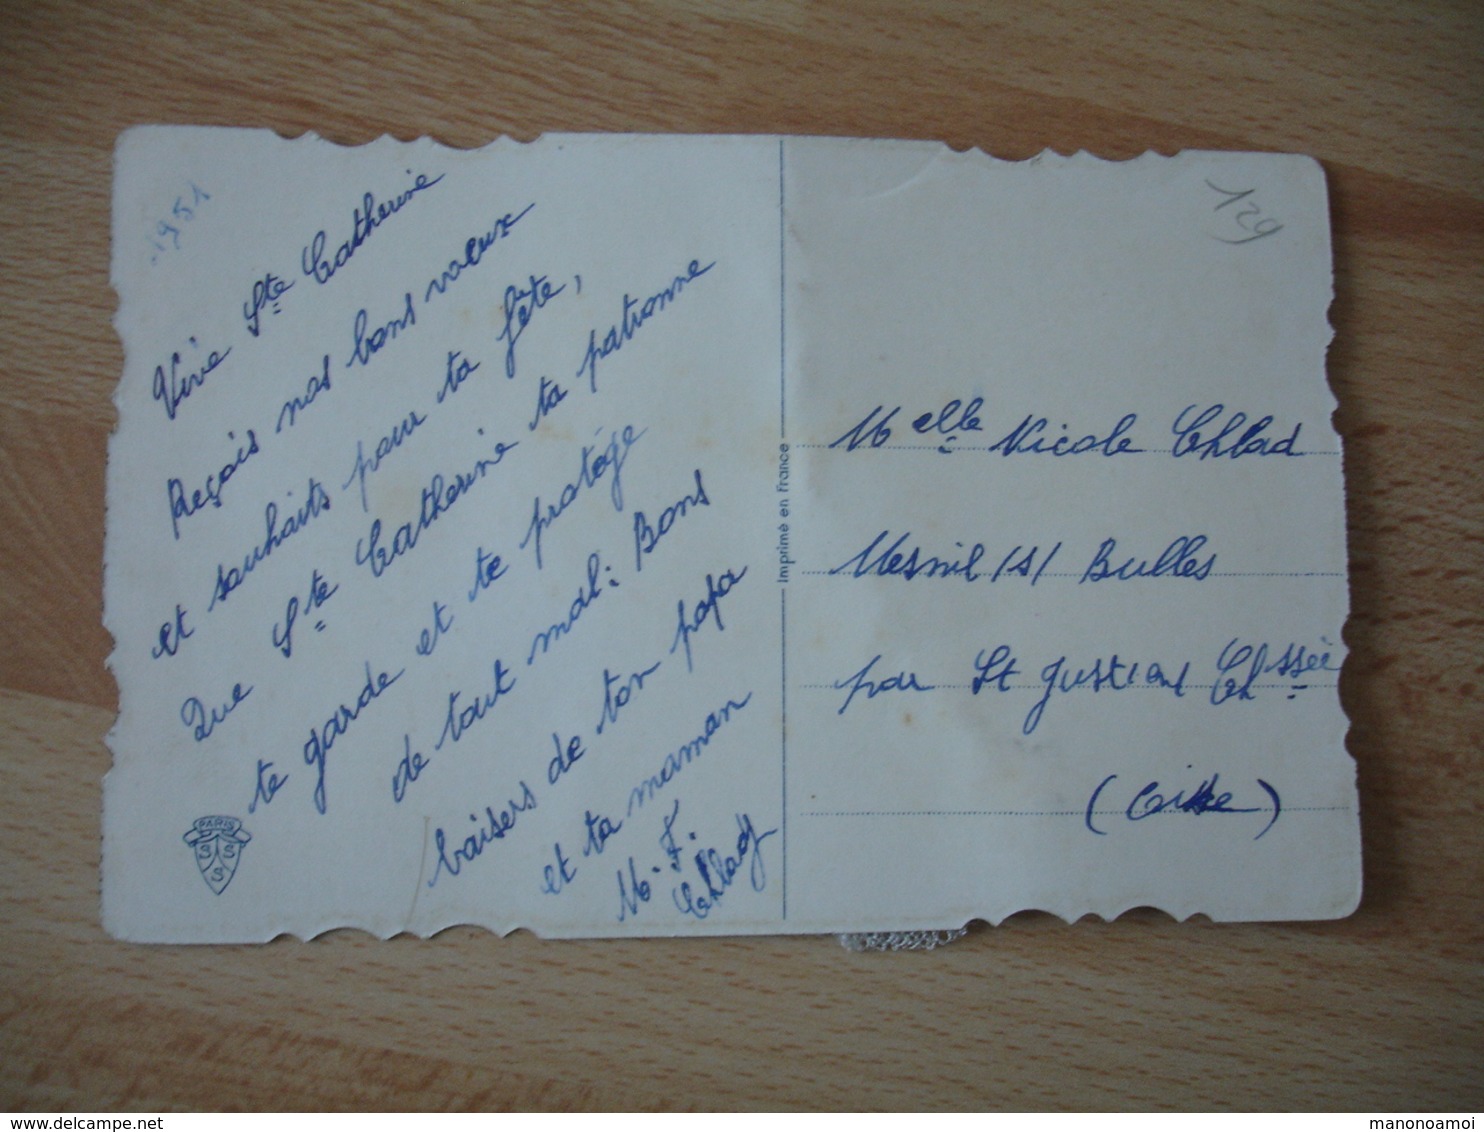 1951
Vive Ste Catherine
Reçois nos bons voeux
et souhaits pour ta fête,
Que Ste Catherine ta patronne
te garde et te protège
de tout mal. Bons
baisers de ton papa
et ta maman
M. F.
Chlad
PARIS
S S
S
Imprimé en France
129
Melle Nicole Chlad
Mesnil /s/ Bulles
par St Just en Chssée
(Oise)
manonoamoi
delcampe.net